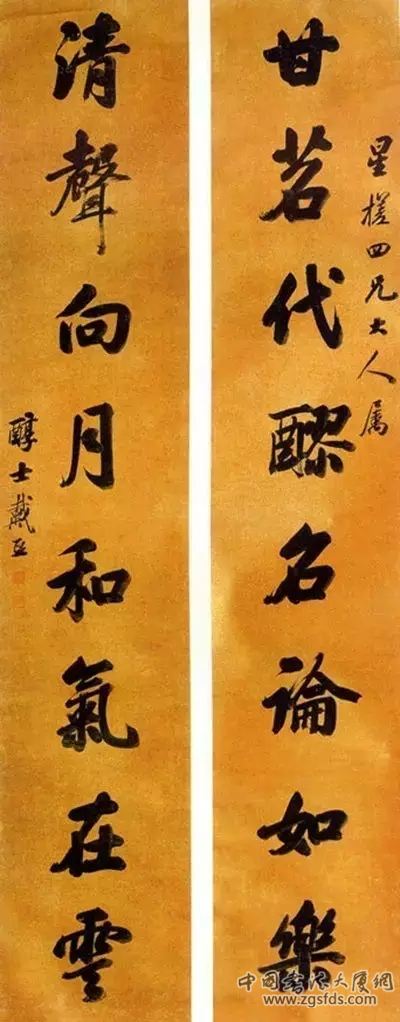 星槎四兄大人属
甘茗代醪名論如樂
清聲向月和氣在雲
醇士戴熙
中國書法大厦網
www.zgsfds.com